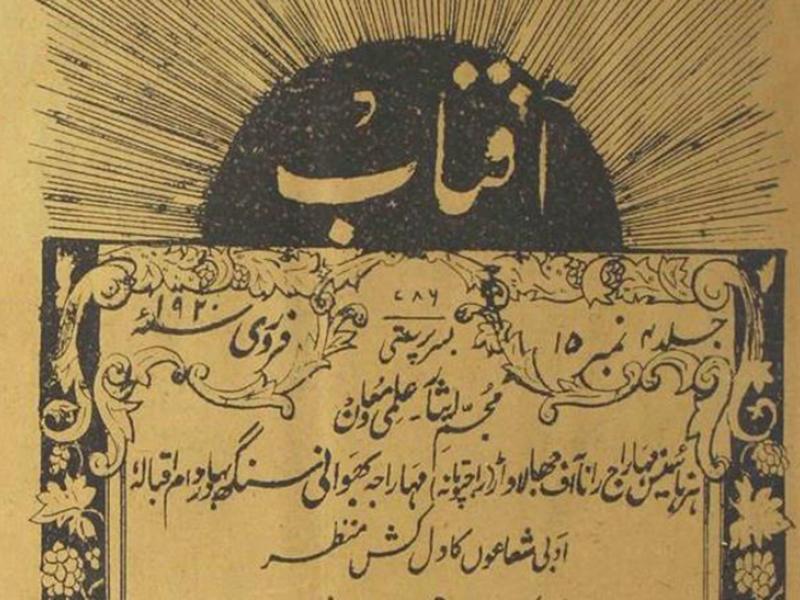 آفتاب
جلد ۴ نمبر ۱۵
۷۸۶
فروری سنہ ۱۹۲۰ء
بسرپرستی
مجسم ایثار۔ علمی معاون
ہزہائینس مہاراج رانا آف جھالاواڑ (راجپوتانہ) مہاراجہ بھوانی سنگھ بہادر دام اقبالہٗ
ادبی شعاعوں کا دل کش منظر